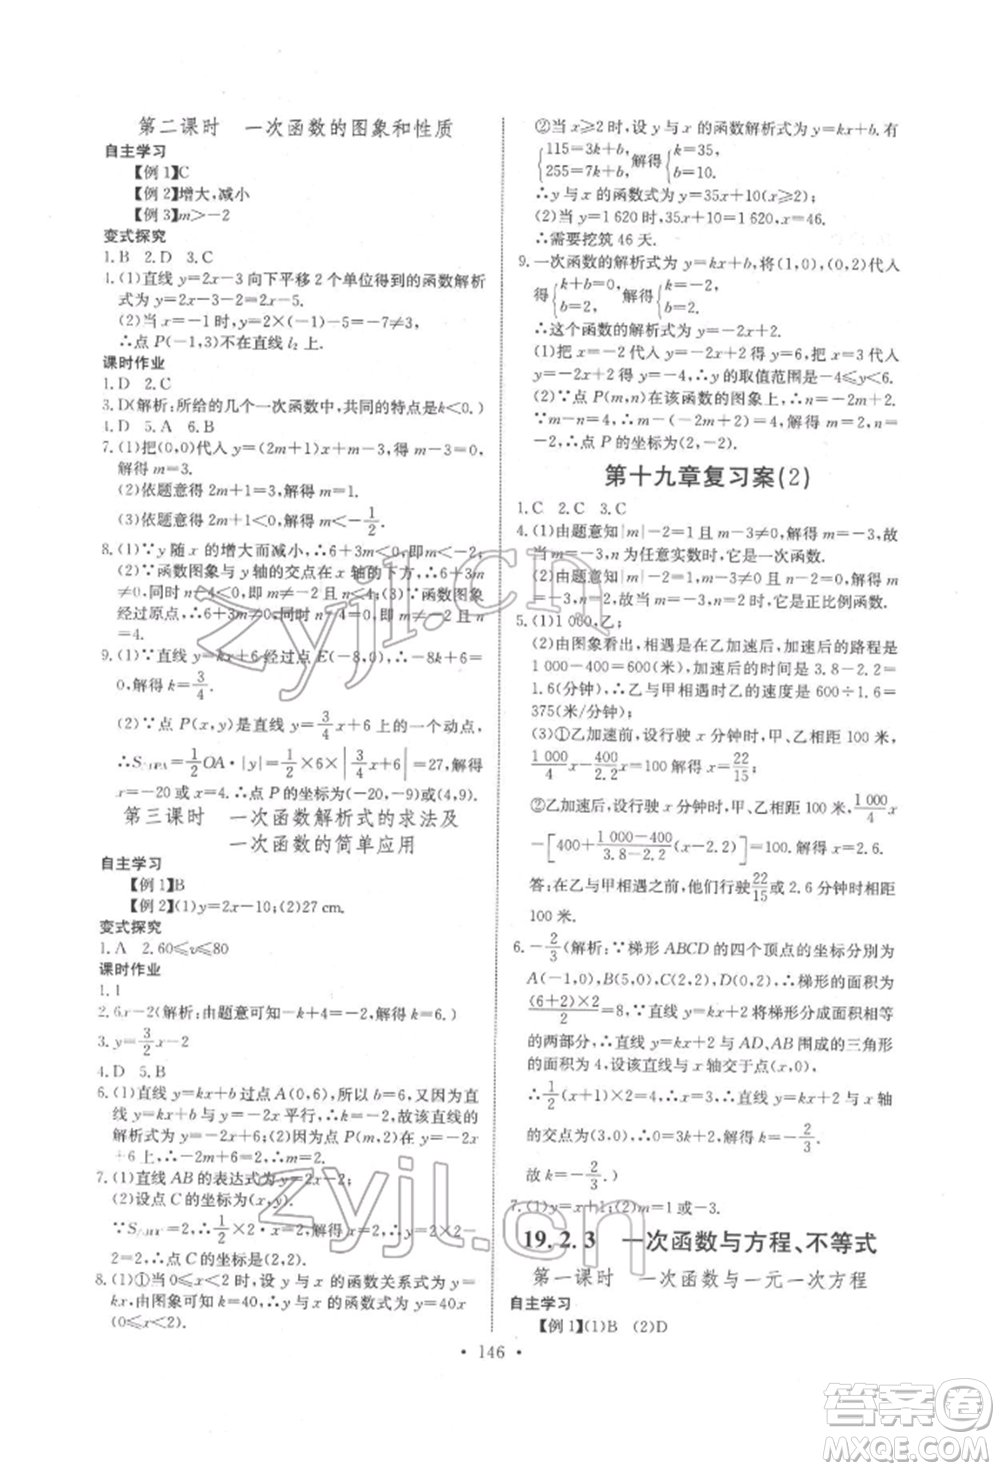 第二课时　一次函数的图象和性质
自主学习
【例1】C
【例2】增大,减小
【例3】m>-2
变式探究
1.B　2.D　3.C
1.(1)直线 y=2x-3 向下平移 2 个单位得到的函数解析
式为 y=2x-3-2=2x-5.
(2)当 x=-1 时,y=2×(-1)-5=-7≠3,
∴点 P(-1,3)不在直线 l₂ 上.
课时作业
1.D　2.C
3.D(解析:所给的几个一次函数中,共同的特点是k<0.)
4.D　5.A　6.B
7.(1)把(0,0)代入 y=(2m+1)x+m-3,得 0=m-3,
解得 m=3.
(2)依题意得 2m+1=3,解得 m=1.
(3)依题意得 2m+1<0,解得 m<-1/2.
8.(1)∵y 随 x 的增大而减小,∴6+3m<0,得 m<-2.
(2)∵函数图象与 y 轴的交点在 x 轴的下方,∴6+3m
≠0,同时 n-4<0,得 m≠-2,n<4.(3)∵函数图象
经过原点,∴6+3m≠0,n-4=0,得 m≠-2,n=4.
9.(1)∵直线 y=kx+6 经过点 E(-8,0),∴-8k+6=
0,解得 k=3/4.
(2)∵点 P(x,y)是直线 y=3/4x+6 上的一个动点,
∴S=1/2OA·|y|=1/2×6×|3/4x+6|=27,解得
x=-20 或 x=4.∴点 P 的坐标为(-20,-9)或(4,9).
第三课时　一次函数解析式的求法及
一次函数的简单应用
自主学习
【例1】B
【例2】(1)y=2x-10;(2)27 cm.
变式探究
1.A　2.60≤v≤80
课时作业
1.1
2.6x-2(解析:由题意可知-k+4=-2,解得k=6.)
3.y=3/2x-2
4.D　5.B
6.(1)直线 y=kx+b 过点 A(0,6),所以 b=6,又因为直
线 y=kx+b 与 y=-2x 平行,∴k=-2,故该直线的
解析式为 y=-2x+6;(2)因为点 P(m,2)在 y=-2x
+6 上,∴-2m+6=2,∴m=2.
7.(1)直线 AB 的表达式为 y=2x-2.
(2)设点 C 的坐标为(x,y),
∵S=2,∴1/2×2·x=2,解得 x=2,∴y=2×2-2
=2,∴点 C 的坐标是(2,2).
8.(1)①当 0≤x≤2 时,设 y 与 x 的函数解析式为 y=
kx.由图象可知 k=40,∴y 与 x 的函数式为 y=40x
(0≤x≤2).
②当 x≥2 时,设 y 与 x 的函数解析式为 y=kx+b.有
{115=3k+b, 255=7k+b, 解得{k=35, b=10.
∴y 与 x 的函数式为 y=35x+10(x≥2).
(2)当 y=1 620 时,35x+10=1 620,x=46.
∴需要挖筑 46 天.
9.一次函数的解析式为 y=kx+b,将(1,0),(0,2)代入
得{k+b=0, b=2, 解得{k=-2, b=2,
∴这个函数的解析式为 y=-2x+2.
(1)把 x=-2 代入 y=-2x+2 得 y=6,把 x=3 代入
y=-2x+2 得 y=-4,∴y 的取值范围是-4≤y<6.
(2)∵点 P(m,n)在该函数的图象上,∴n=-2m+2.
∵m-n=4,∴m-(-2m+2)=4,解得 m=2,
n=-2,∴点 P 的坐标为(2,-2).
第十九章复习案(2)
1.C　2.C　3.C
4.(1)由题意知|m|-2=1 且 m-3≠0,解得 m=-3,故
当 m=-3,n 为任意实数时,它是一次函数.
(2)由题意知|m|-2=1 且 m-3≠0,n-2=0,解得
m=-3,n=2,故当 m=-3,n=2 时,它是正比例函数.
5.(1)1 000,乙;
(2)由图象看出,相遇是在乙加速后,加速后的路程是
1 000-400=600(米),加速后的时间是 3.8-2.2=
1.6(分钟),乙与甲相遇时乙的速度是 600÷1.6=
375(米/分钟);
(3)①乙加速前,设行驶 x 分钟时,甲、乙相距 100 米,
1 000/4x-400/2.2x=100,解得 x=22/15;
②乙加速后,设行驶 x 分钟时,甲、乙相距 100 米,1 000/4x
-[400+1 000-400/3.8-2.2(x-2.2)]=100,解得 x=2.6.
答:在乙与甲相遇前,他们行驶22/15或 2.6 分钟时相距
100 米.
6.-2/3(解析:∵梯形 ABCD 的四个顶点的坐标分别为
A(-1,0),B(5,0),C(2,2),D(0,2),∴梯形的面积为
(6+2)×2/2=8,∵直线 y=kx+2 将梯形分成面积相等
的两部分,∴直线 y=kx+2 与 AD,AB 围成的三角形
的面积为 4,设该直线与 x 轴交于点(x,0),
∴1/2(x+1)×2=4,∴x=3,∴直线 y=kx+2 与 x 轴
的交点为(3,0),∴0=3k+2,解得 k=-2/3.
故 k=-2/3.)
7.(1)y=x+1;(2)m=1 或-3.
19.2.3　一次函数与方程、不等式
第一课时　一次函数与一元一次方程
自主学习
【例1】(1)B　(2)D
• 146 •
zyjl.cn
zyjl.cn
答案圈
MXQE.COM